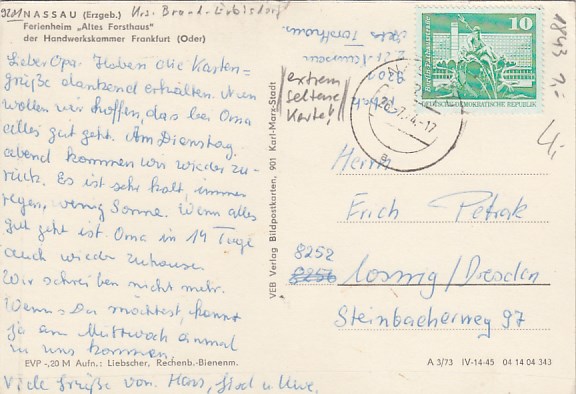 9201 NASSAU (Erzgeb.) Krs. Brand-Erbisdorf
Ferienheim „Altes Forsthaus"
der Handwerkskammer Frankfurt (Oder)
Lieber Opa. Haben die Karten=
grüße dankend erhalten. Nun
wollen wir hoffen, daß bei Oma
alles gut geht. Am Dienstag=
abend kommen wir wieder zu-
rück. Es ist sehr kalt, immer
regen, wenig Sonne. Wenn alles
gut geht ist Oma in 14 Tage
auch wieder zuhause.
Wir schreiben nicht mehr.
Wenn Du möchtest, kannst
ja am Mittwoch einmal
zu uns kommen.
EVP -,20 M Aufn.: Liebscher, Rechenb.-Bienenm.
Viele Grüße von. Hans, und Uwe.
VEB Verlag Bildpostkarten, 901 Karl-Marx-Stadt
extrem
seltene
Karte!
10
Berlin
DEUTSCHE DEMOKRATISCHE REPUBLIK
1843 1,-
Herrn
Erich Petrak
8252
8256 Coswig/Dresden
Steinbacherweg 97
A 3/73 IV-14-45 04 14 04 343